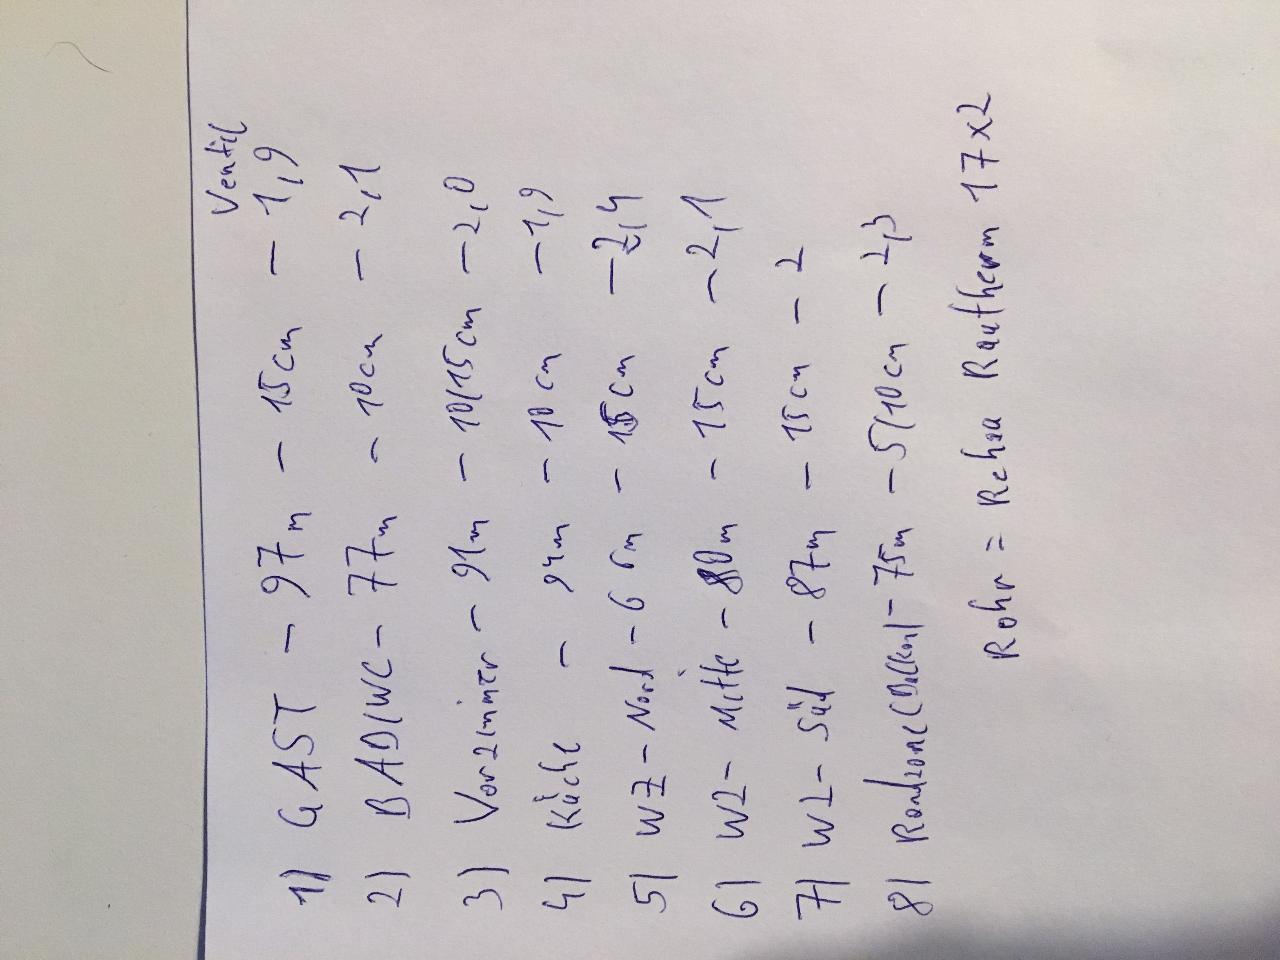 Ventil
1) GAST - 97m - 15cm - 1,9
2) BAD/WC - 77m - 10cm - 2,1
3) Vorzimmer - 91m - 10/15cm - 2,0
4) Küche - 94m - 10cm - 1,9
5) WZ - Nord - 66m - 15cm - 2,4
6) WZ - Mitte - 80m - 15cm - 2,1
7) WZ - Süd - 87m - 15cm - 2
8) Randzone (Balkon) - 75m - 5/10cm - 2,3
Rohr = Rehau Rautherm 17x2